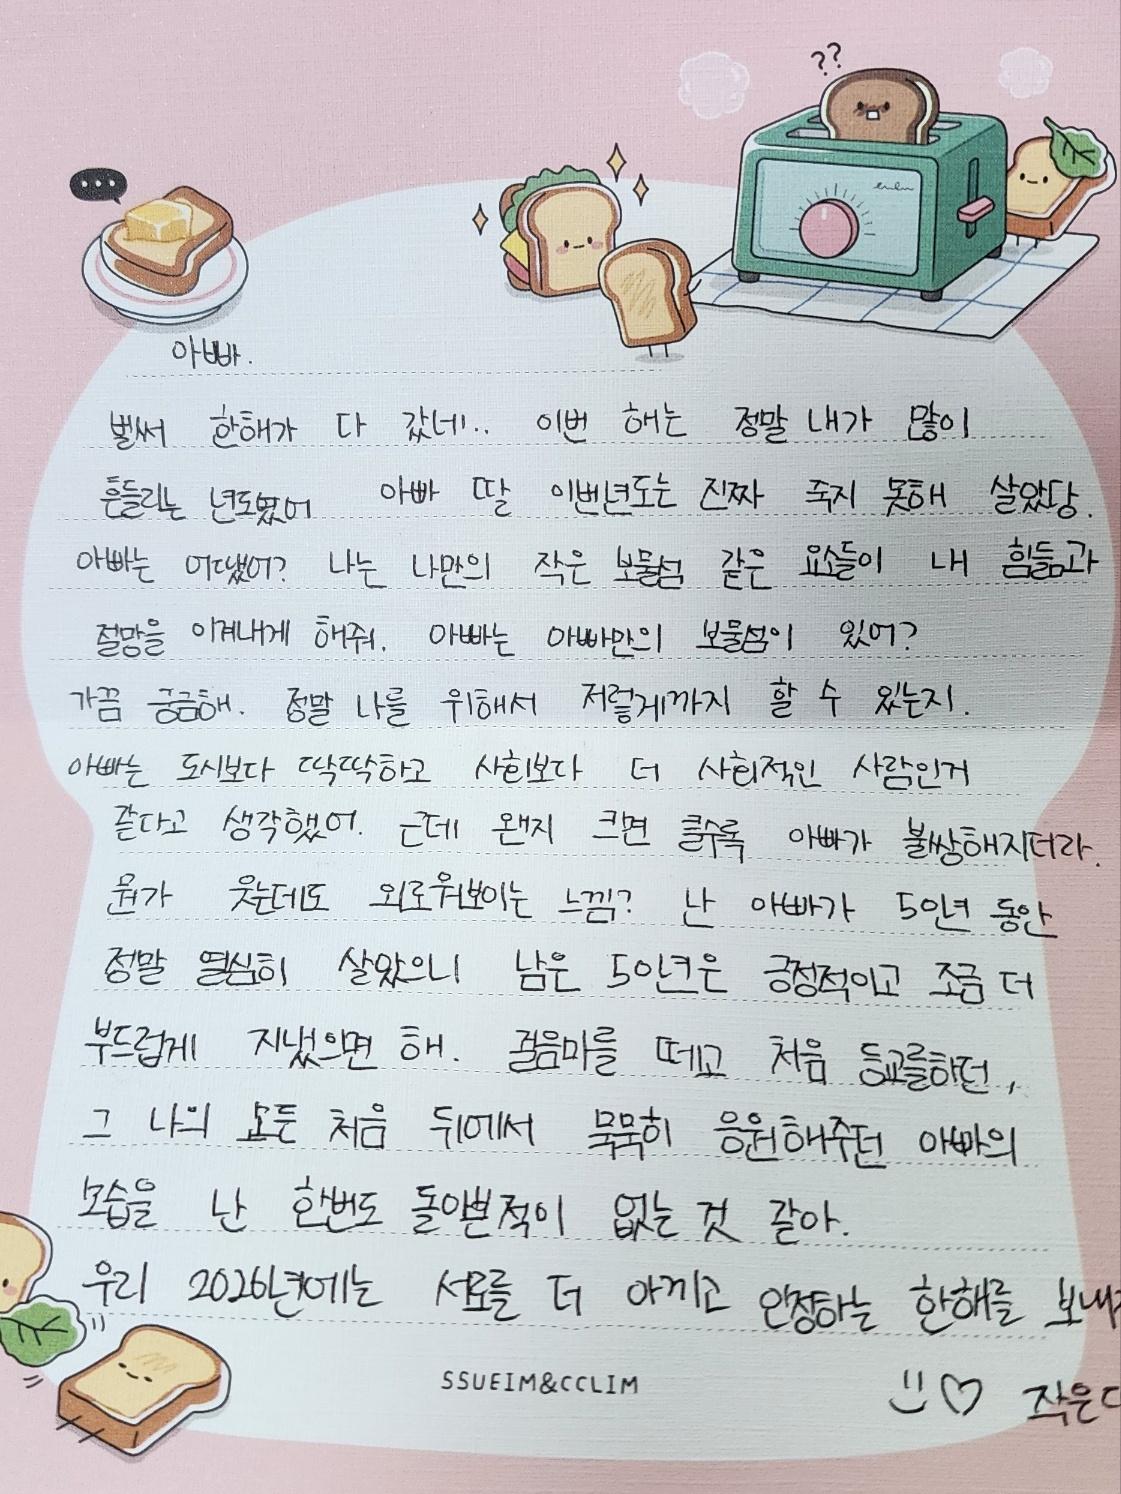 ??
아빠.
벌써 한해가 다 갔네.. 이번 해는 정말 내가 많이
흔들리는 년도였어 아빠 딸 이번년도는 진짜 죽지 못해 살았당.
아빠는 어땠어? 나는 나만의 작은 보물섬 같은 요소들이 내 힘듦과
절망을 이겨내게 해줘. 아빠는 아빠만의 보물섬이 있어?
가끔 궁금해. 정말 나를 위해서 저렇게까지 할 수 있는지.
아빠는 도시보다 딱딱하고 사회보다 더 사회적인 사람인거
같다고 생각했어. 근데 왠지 크면 클수록 아빠가 불쌍해지더라.
뭔가 웃는데도 외로워보이는 느낌? 난 아빠가 50년 동안
정말 열심히 살았으니 남은 50년은 긍정적이고 조금 더
부드럽게 지냈으면 해. 걸음마를 떼고 처음 등교를하던,
그 나의 모든 처음 뒤에서 묵묵히 응원해주던 아빠의
모습을 난 한번도 돌아본적이 없는 것 같아.
우리 2026년에는 서로를 더 아끼고 인정하는 한해를
SSUEIM&CCLIM
작은